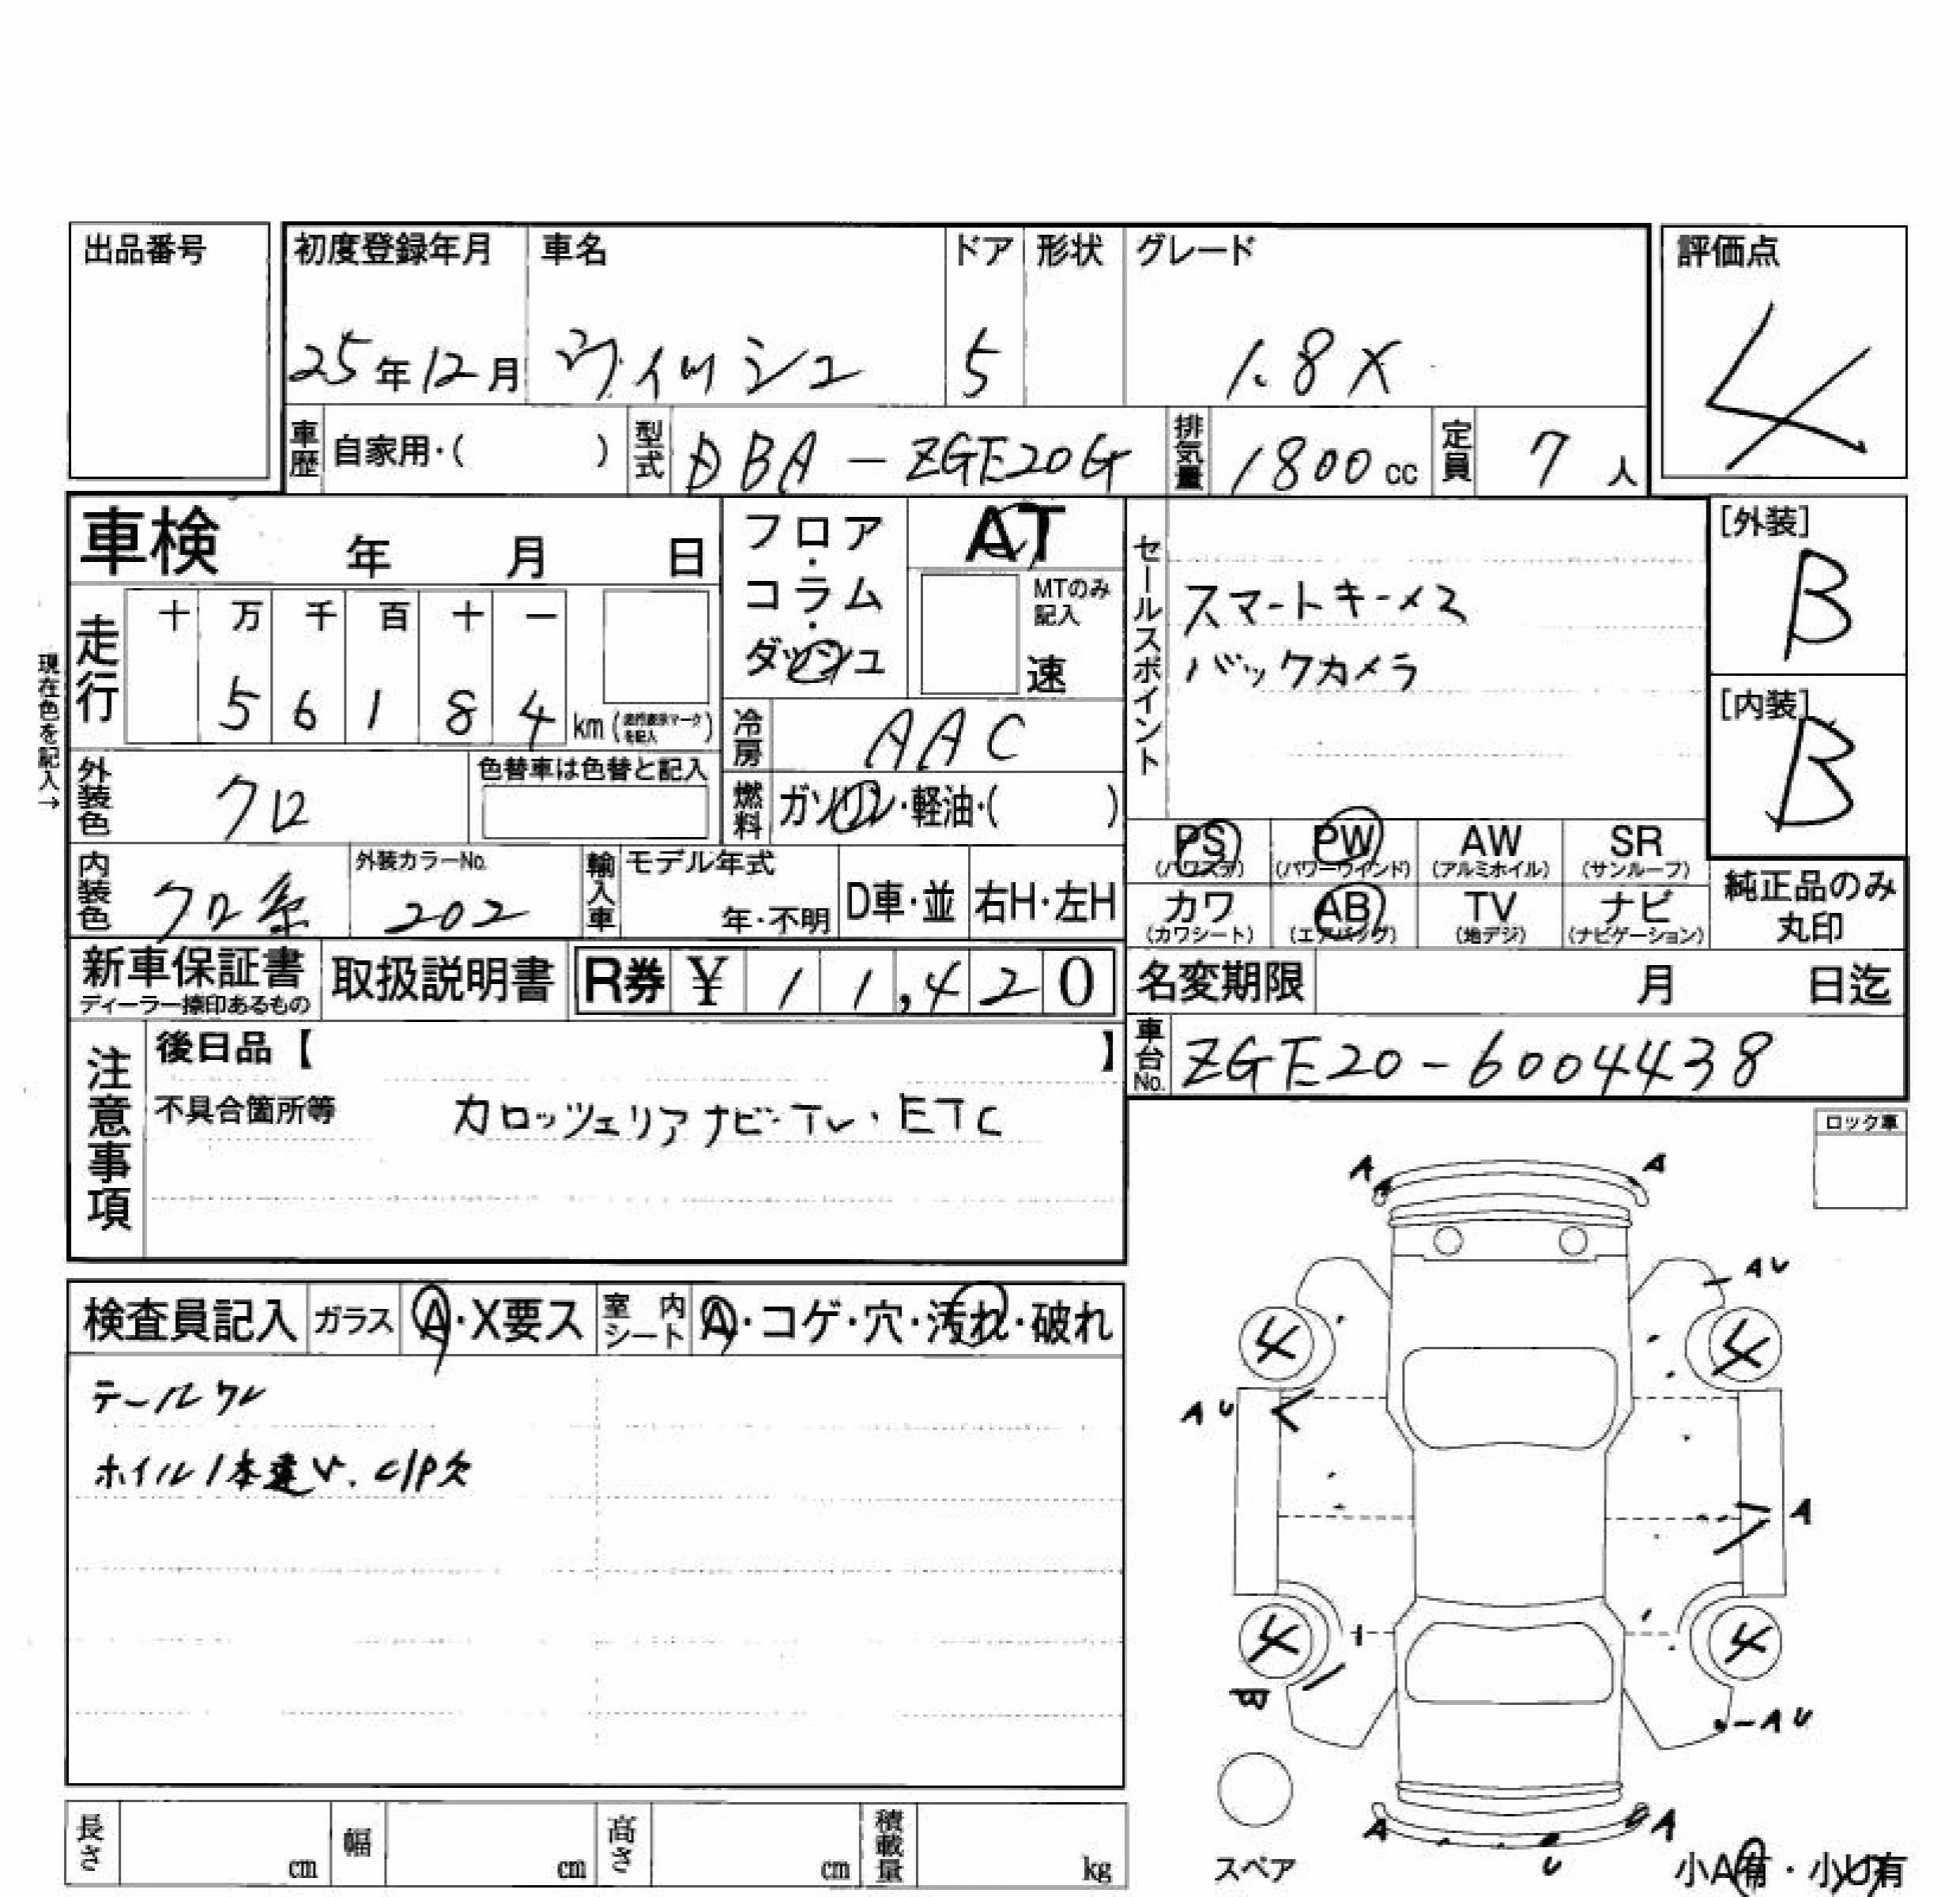 出品番号
初度登録年月 車名 ドア 形状 グレード 評価点
25年12月 ウィッシュ 5 1.8X 4
車歴 自家用・( ) 型式 DBA-ZGE20G 排気量 1800cc 定員 7人
車検 年 月 日
フロア・コラム・ダッシュ
AT
MTのみ記入
速
セールスポイント
スマートキーメ2
バックカメラ
[外装]
B
[内装]
B
現在色を記入→
走行 十 万 千 百 十 一
5 6 1 8 4 km (走行表示マークを記入)
冷房 AAC
外装色 クロ 色替車は色替と記入
燃料 ガソリン・軽油・( )
PS (パワステ) PW (パワーウインド) AW (アルミホイル) SR (サンルーフ)
カワ (カワシート) AB (エアバッグ) TV (地デジ) ナビ (ナビゲーション)
純正品のみ
丸印
内装色 クロ系 外装カラーNo. 202 輸入車 モデル年式 年・不明 D車・並 右H・左H
新車保証書 ディーラー捺印あるもの 取扱説明書 R券 ¥ 11,420
名変期限 月 日迄
車台No. ZGE20-6004438
注意事項
後日品【 】
不具合箇所等 カロッツェリアナビ・TV・ETC
ロック車
検査員記入 ガラス A・X要ス 室内シート A・コゲ・穴・汚れ・破れ
テールワレ
ホイル1本違い. C/P欠
A A
AU
4 4
AU
A
4 4
AU
A A
U
スペア
小A有・小U有
長さ cm 幅 cm 高さ cm 積載量 kg